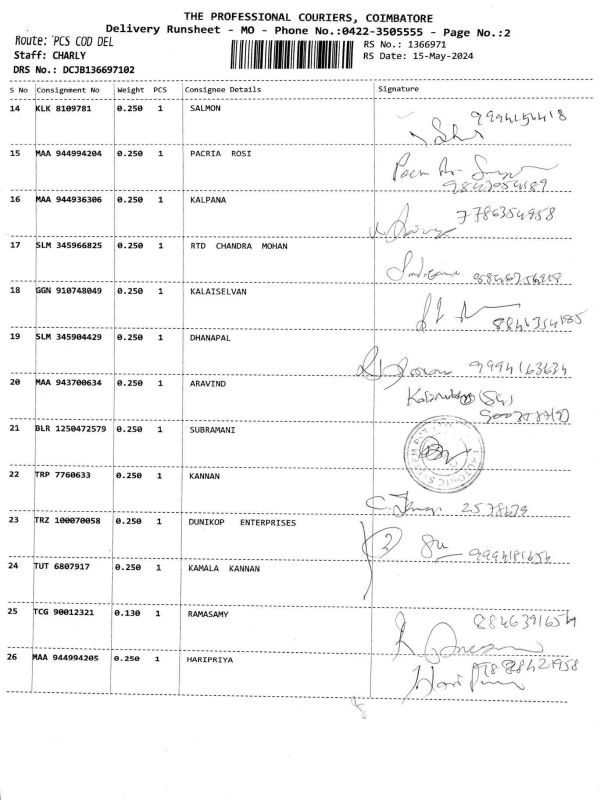 THE PROFESSIONAL COURIERS, COIMBATORE
Delivery Runsheet - MO - Phone No.:0422-3505555 - Page No.:2
Route: PCS COD DEL
RS No.: 1366971
Staff: CHARLY
RS Date: 15-May-2024
DRS No.: DCJB136697102
S No Consignment No Weight PCS Consignee Details Signature
14 KLK 8109781 0.250 1 SALMON
15 MAA 944994204 0.250 1 PACRIA ROSI
16 MAA 944936306 0.250 1 KALPANA 7786354958
17 SLM 345966825 0.250 1 RTD CHANDRA MOHAN
18 GGN 910748049 0.250 1 KALAISELVAN
19 SLM 345904429 0.250 1 DHANAPAL 9994163634
20 MAA 943700634 0.250 1 ARAVIND
21 BLR 1250472579 0.250 1 SUBRAMANI
22 TRP 7760633 0.250 1 KANNAN
23 TRZ 100070058 0.250 1 DUNIKOP ENTERPRISES
24 TUT 6807917 0.250 1 KAMALA KANNAN
25 TCG 90012321 0.130 1 RAMASAMY
26 MAA 944994205 0.250 1 HARIPRIYA